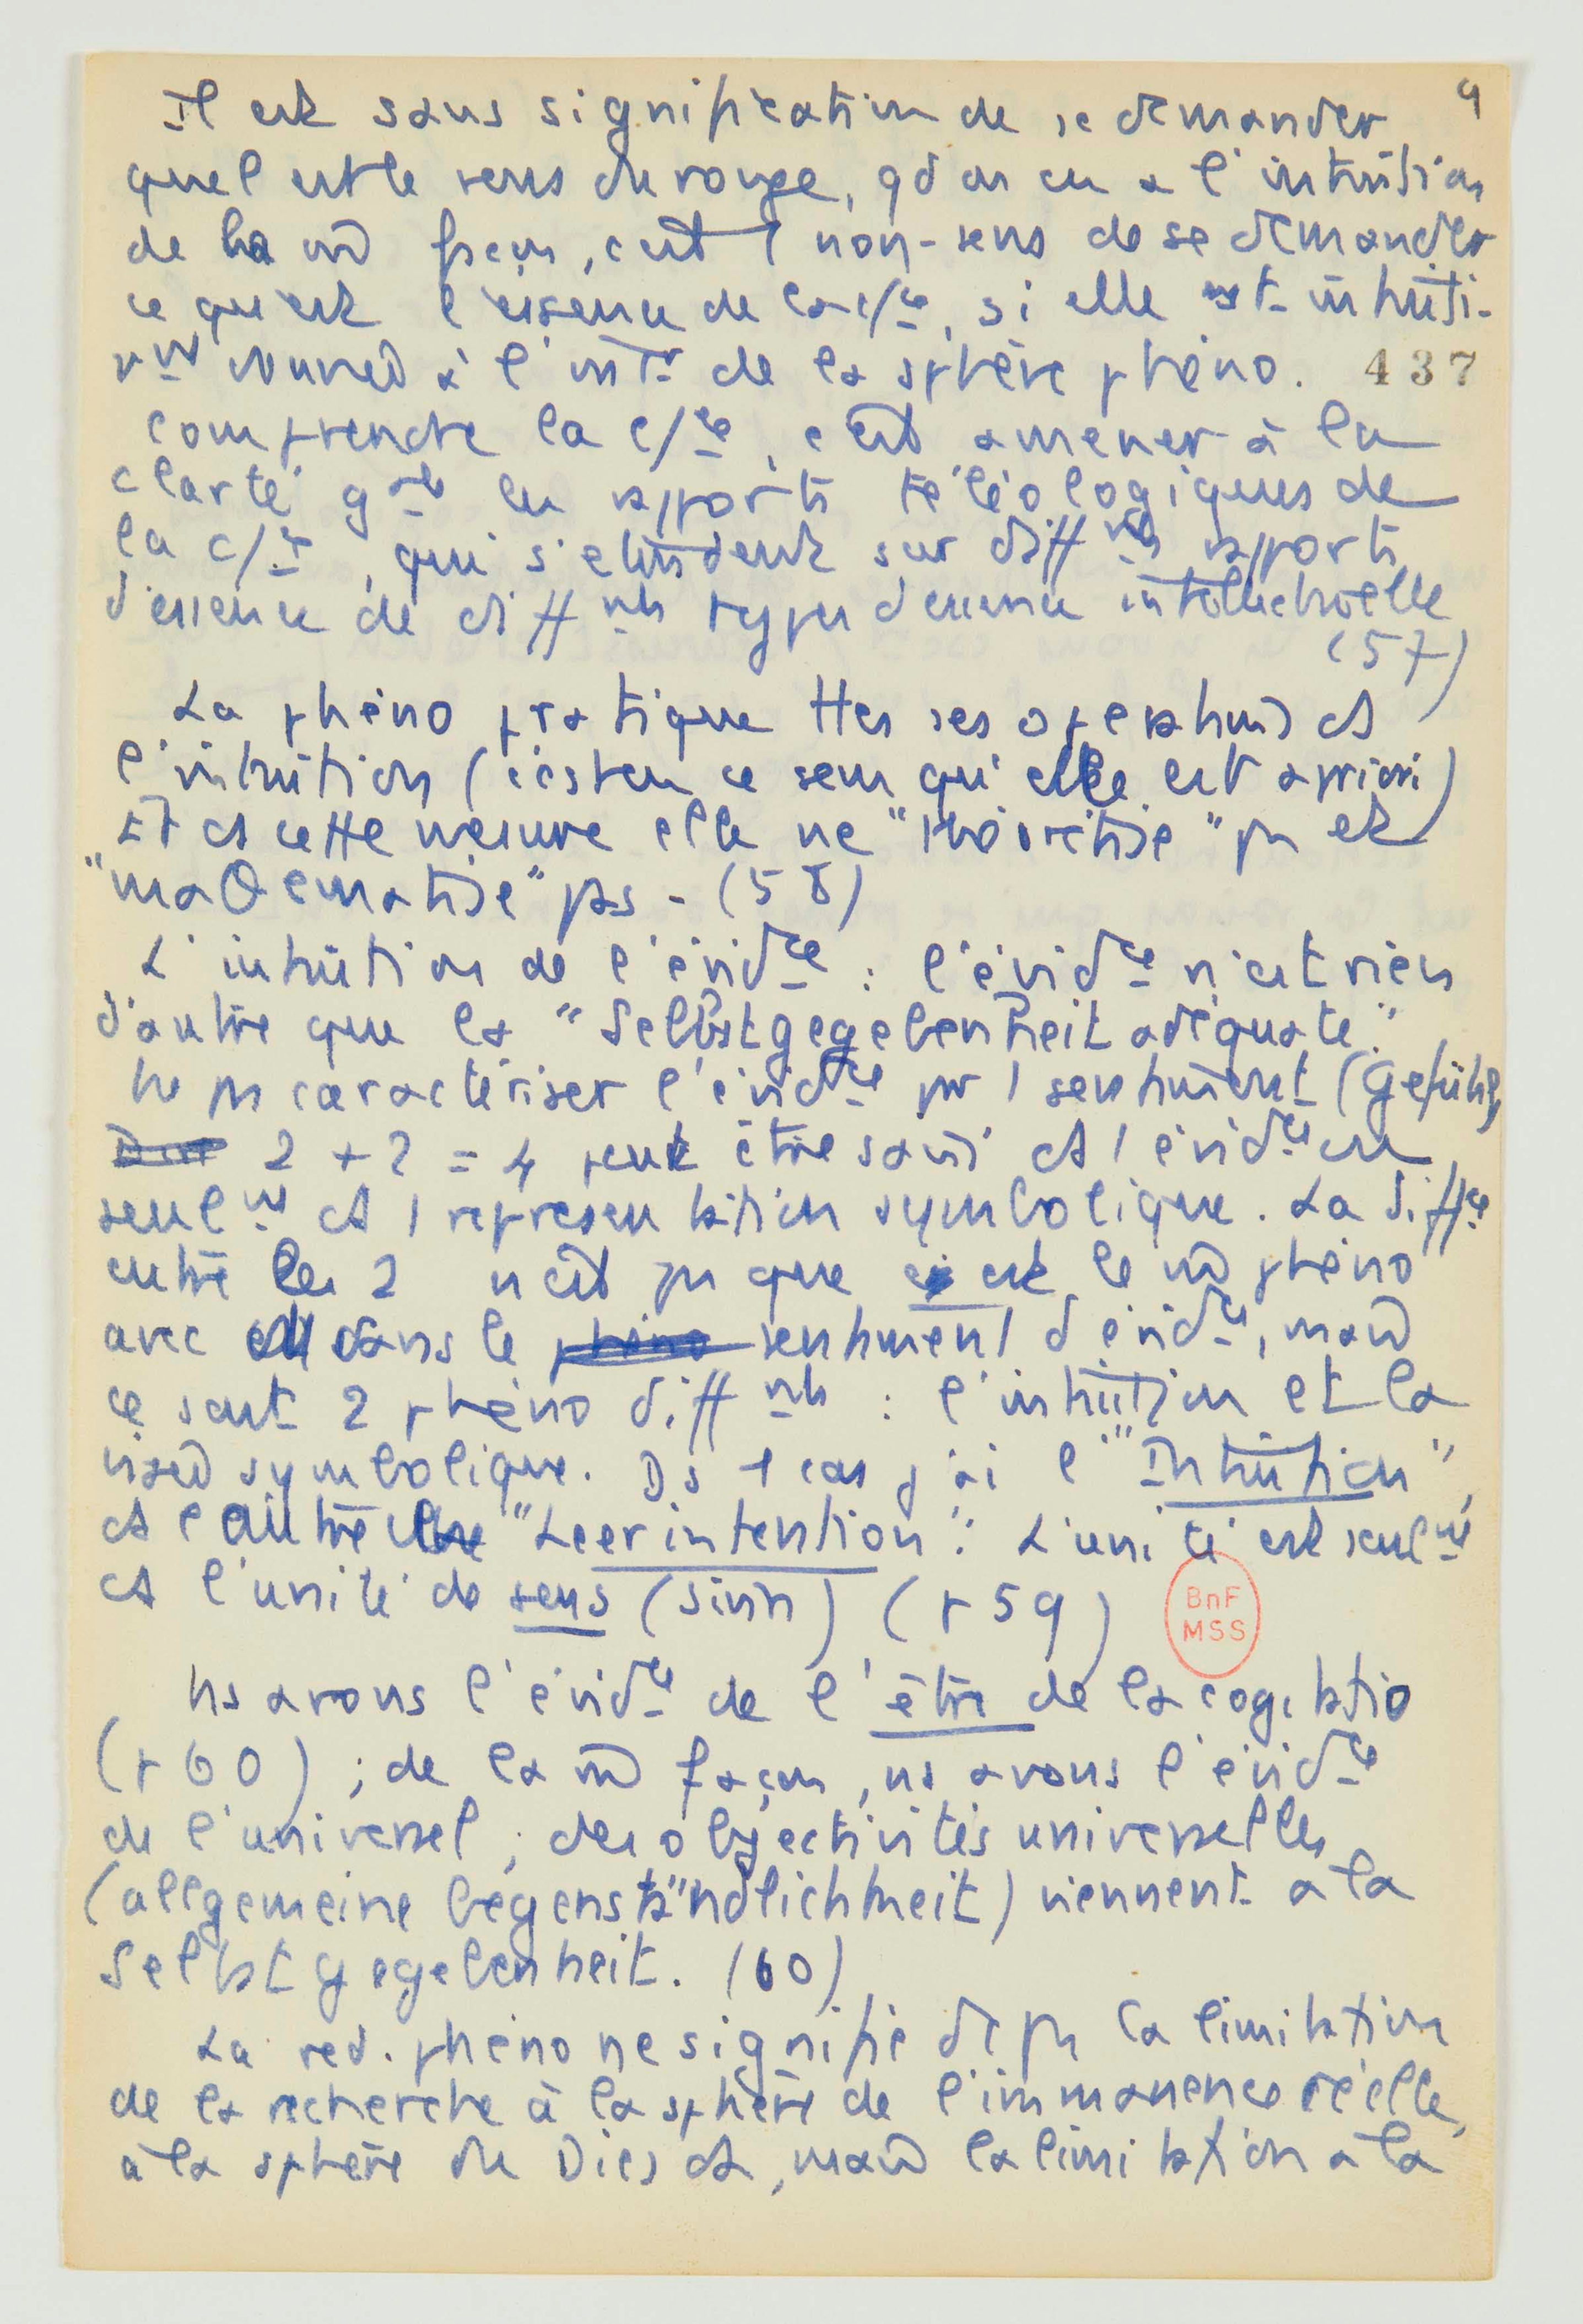 9
Il est sans signification de se demander
quel est le sens du rouge, qd on en a l'intuition
de la m̂ façon, c'est 1 non-sens de se demander
ce qu'est l'essence de la c/ce, si elle est intuiti-
vmt donnée à l'intr de la sphère phéno. 437
comprendre la c/ce, c'est amener à la
clarté gale les rapports téléologiques de
la c/ce, qui s'étendent sur diffnts rapports
d'essence de diffnts types d'essence intellectuelle
(57)
La phéno pratique ttes ses opérations ds
l'intuition (c'est en ce sens qu'elle est a priori)
Et ds cette mesure elle ne "théorétise" pas et
"maθématise" pas - (58)
L'intuition de l'évidce : l'évidce n'est rien
d'autre que la "Selbstgegebenheit adéquate".
Ne pas caractériser l'évidce par 1 sentiment (Gefühl)
2 + 2 = 4 peut être saisi ds 1 évidce ou
seulmt ds 1 représentation symbolique. La diffce
entre les 2 n'est pas que c'est le m̂ phéno
avec ou sans le sentiment d'évidce, mais
ce sont 2 phéno diffnts : l'intuition et la
visée symbolique. Ds 1 cas j'ai l'"Intuition",
ds l'autre une "Leerintention". L'unité est seulmt
ds l'unité de sens (Sinn) (p 59)
BnF
MSS
Ns avons l'évidce de l'être de la cogitatio
(p 60) ; de la m̂ façon, ns avons l'évidce
de l'universel ; des objectivités universelles
(allgemeine Gegenständlichkeit) viennent à la
Selbstgegebenheit. (60)
La réd. phéno ne signifie dc pas la limitation
de la recherche à la sphère de l'immanence réelle,
à la sphère du Dies da, mais la limitation à la